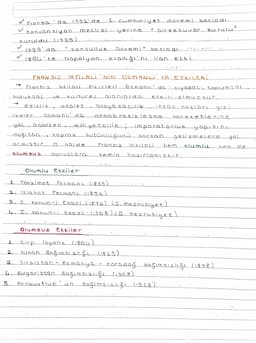 ✓ Fransa'da 1792'de I. Cumhuriyet dönemi başladı.
✓ Konvansiyon meclisi yerine "Direktuvar Kurulu"
kuruldu (1795)
✓ 1799'da "Konsüllük Dönemi" başladı.
✓ 1804'te Napolyon krallığı'nı ilan etti
FRANSIZ İHTİLALİ'NİN OSMANLI'YA ETKİLERİ
→ Fransız İhtilali fikirleri Osmanlı'da siyasal, toplumsal,
hukuksal ve kültürel alanlarda etkili olmuştur.
→ Eşitlik, adalet, anayasacılık, insan hakları gibi
fikirler Osmanlı'da demokratikleşme hareketlerine
yol açarken, milliyetçilik, imparatorluk yapısını
dağıtan, toprak bütünlüğünü bozan gelişmelere yol
açmıştır. O halde Fransız ihtilali hem olumlu hem de
olumsuz sonuçlara zemin hazırlamıştır.
Olumlu Etkiler
1. Tanzimat Fermanı (1839)
2. Islahat Fermanı (1856)
3. I. Kanun-i Esasi (1876) (I. Meşrutiyet)
4. II. Kanun-i Esasi (1908) (II. Meşrutiyet)
Olumsuz Etkiler
1. Sırp İsyanı (1804)
2. Yunan Bağımsızlığı (1829)
3. Sırbistan - Romanya - Karadağ Bağımsızlığı (1878)
4. Bulgaristan Bağımsızlığı (1908)
5. Arnavutluk'un Bağımsızlığı